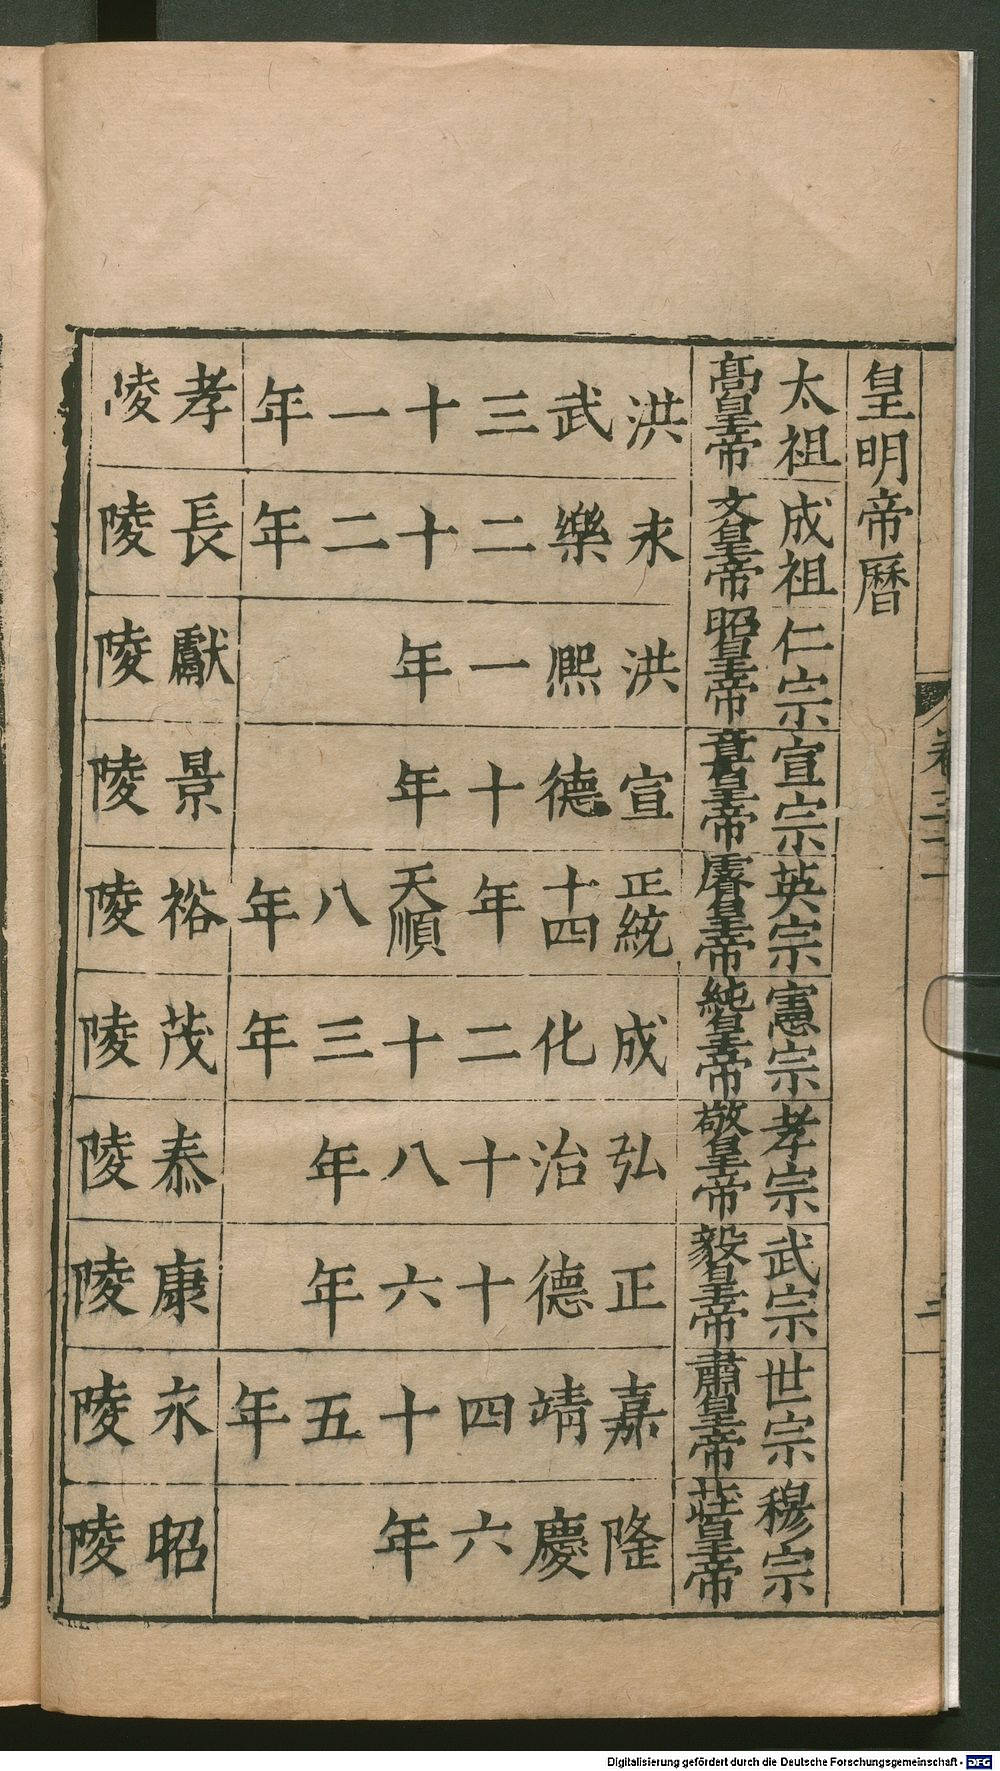 皇明帝曆
太祖
髙皇帝
洪武三十一年
孝陵
成祖
文皇帝
永樂二十二年
長陵
仁宗
昭皇帝
洪熈一年
獻陵
宣宗
章皇帝
宣德十年
景陵
英宗
睿皇帝
正統十四年天順八年
裕陵
憲宗
純皇帝
成化二十三年
茂陵
孝宗
敬皇帝
弘治十八年
泰陵
武宗
毅皇帝
正德十六年
康陵
世宗
肅皇帝
嘉靖四十五年
永陵
穆宗
莊皇帝
隆慶六年
昭陵
Digitalisierung gefördert durch die Deutsche Forschungsgemeinschaft - DFG